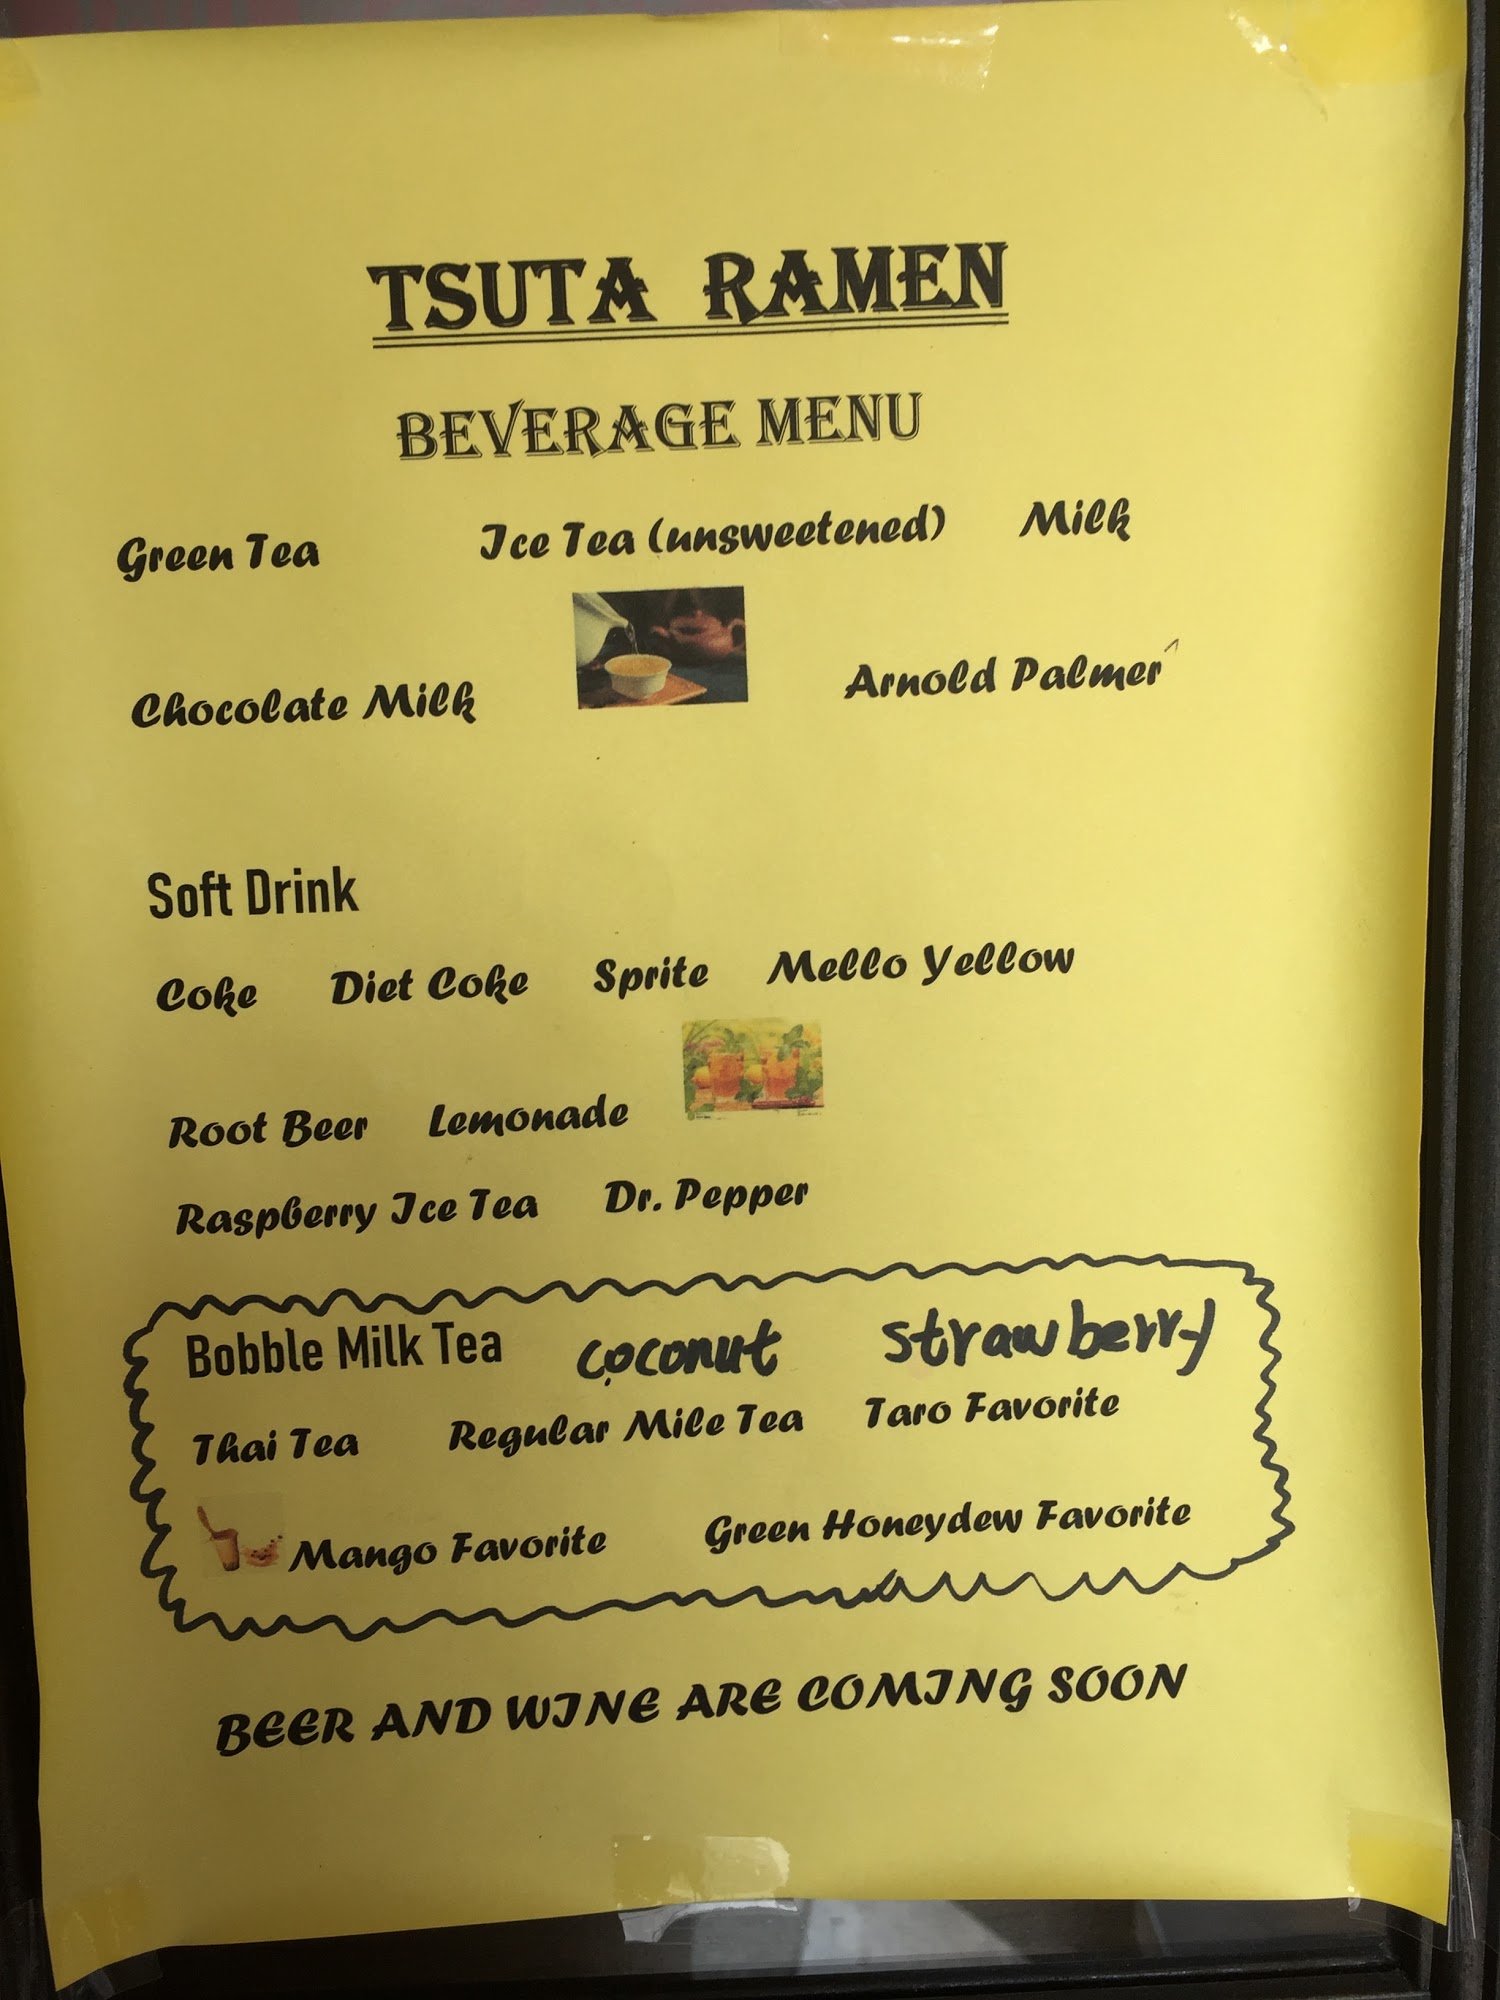 TSUTA RAMEN
BEVERAGE MENU
Green Tea Ice Tea (unsweetened) Milk
Chocolate Milk Arnold Palmer
Soft Drink
Coke Diet Coke Sprite Mello Yellow
Root Beer Lemonade
Raspberry Ice Tea Dr. Pepper
Bobble Milk Tea coconut strawberry
Thai Tea Regular Mile Tea Taro Favorite
Mango Favorite Green Honeydew Favorite
BEER AND WINE ARE COMING SOON